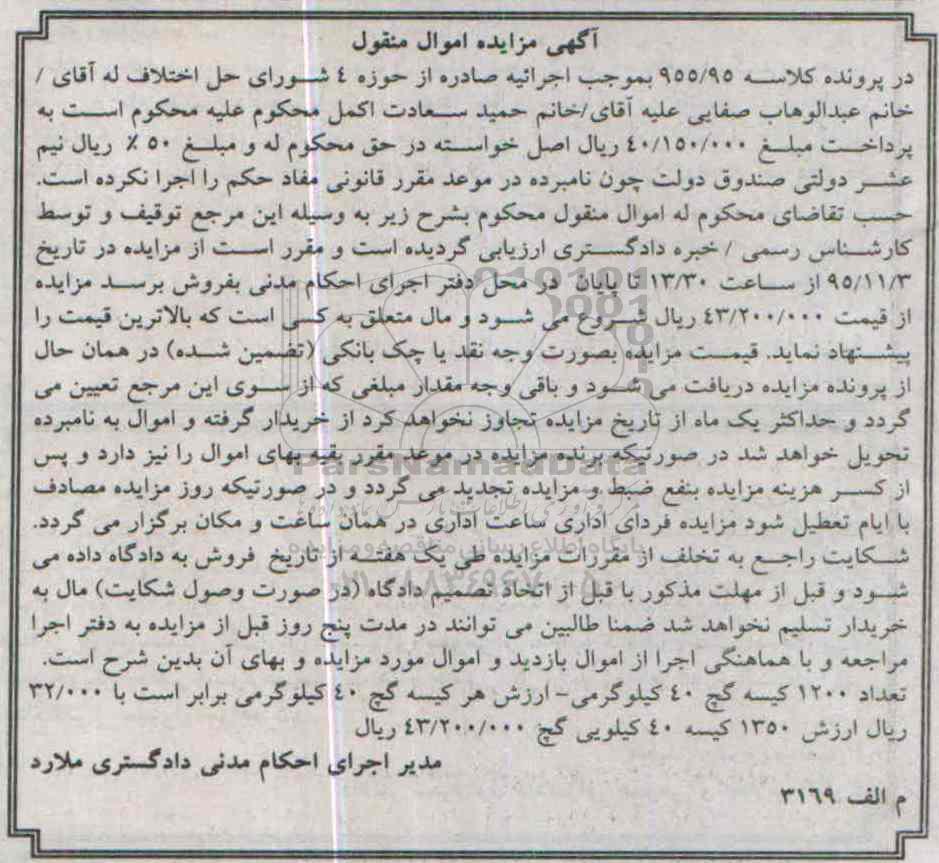 آگهی مزایده اموال منقول
در پرونده کلاسه ۹۵۵/۹۵ بموجب اجرائیه صادره از حوزه ٤ شورای حل اختلاف له آقای /
خانم عبدالوهاب صفایی علیه آقای/خانم حمید سعادت اکمل محکوم علیه محکوم است به
پرداخت مبلغ ٤۰/۱۵۰/۰۰۰ ریال اصل خواسته در حق محکوم له و مبلغ ۵۰ ٪ ریال نیم
عشر دولتی صندوق دولت چون نامبرده در موعد مقرر قانونی مفاد حکم را اجرا نکرده است.
حسب تقاضای محکوم له اموال منقول محکوم بشرح زیر به وسیله این مرجع توقیف و توسط
کارشناس رسمی / خبره دادگستری ارزیابی گردیده است و مقرر است از مزایده در تاریخ
۹۵/۱۱/۳ از ساعت ۱۳/۳۰ تا پایان در محل دفتر اجرای احکام مدنی بفروش برسد مزایده
از قیمت ٤۳/۲۰۰/۰۰۰ ریال شروع می شود و مال متعلق به کسی است که بالاترین قیمت را
پیشنهاد نماید. قیمت مزایده بصورت وجه نقد یا چک بانکی (تضمین شده) در همان حال
از پرونده مزایده دریافت می شود و باقی وجه مقدار مبلغی که از سوی این مرجع تعیین می
گردد و حداکثر یک ماه از تاریخ مزایده تجاوز نخواهد کرد از خریدار گرفته و اموال به نامبرده
تحویل خواهد شد در صورتیکه برنده مزایده در موعد مقرر بقیه بهای اموال را نیز دارد و پس
از کسر هزینه مزایده بنفع ضبط و مزایده تجدید می گردد و در صورتیکه روز مزایده مصادف
با ایام تعطیل شود مزایده فردای اداری ساعت اداری در همان ساعت و مکان برگزار می گردد.
شکایت راجع به تخلف از مقررات مزایده طی یک هفته از تاریخ فروش به دادگاه داده می
شود و قبل از مهلت مذکور با قبل از اتخاذ تصمیم دادگاه (در صورت وصول شکایت) مال به
خریدار تسلیم نخواهد شد ضمنا طالبین می توانند در مدت پنج روز قبل از مزایده به دفتر اجرا
مراجعه و با هماهنگی اجرا از اموال بازدید و اموال مورد مزایده و بهای آن بدین شرح است.
تعداد ۱۲۰۰ کیسه گچ ٤۰ کیلوگرمی- ارزش هر کیسه گچ ٤۰ کیلوگرمی برابر است با ۳۲/۰۰۰
ریال ارزش ۱۳۵۰ کیسه ٤۰ کیلویی گچ ٤۳/۲۰۰/۰۰۰ ریال
مدیر اجرای احکام مدنی دادگستری ملارد
م الف ۳۱٦۹
ParsNamadData
پایگاه اطلاع رسانی مناقصه و مزایده